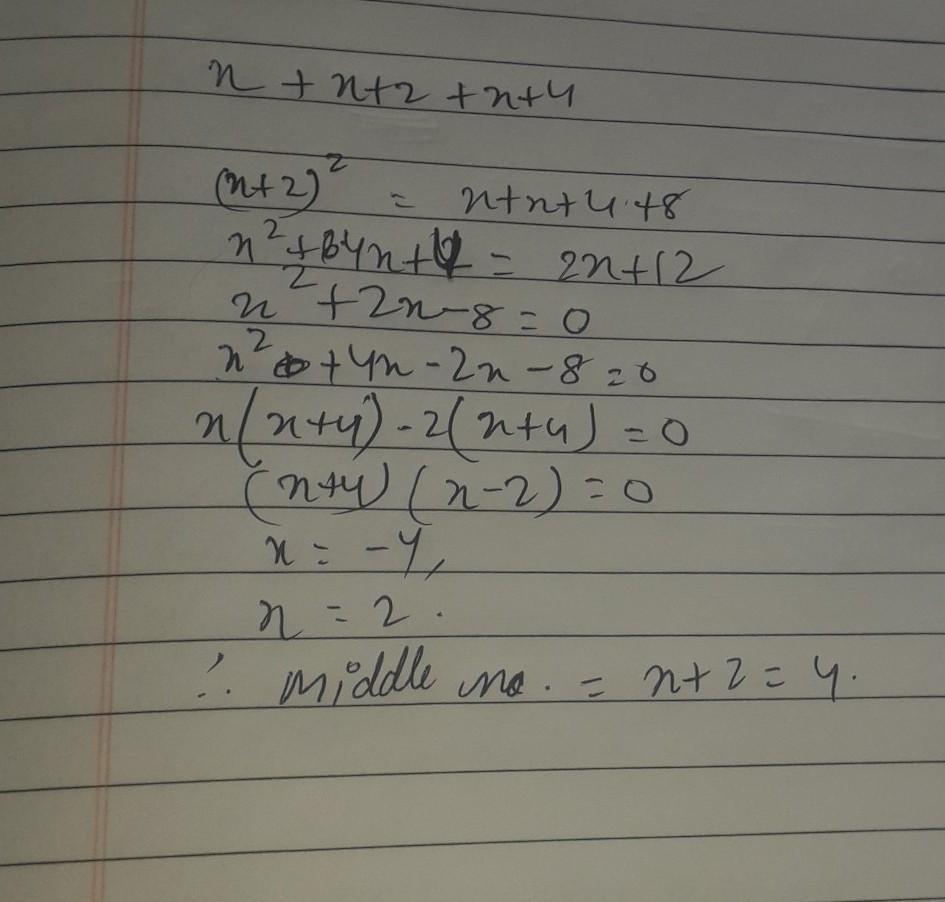 x + x+2 + x+4
(x+2)² = x+x+4+8
x²+4x+4 = 2x+12
x²+2x-8=0
x²+4x-2x-8=0
x(x+4)-2(x+4)=0
(x+4)(x-2)=0
x=-4,
x=2.
∴ middle no. = x+2=4.